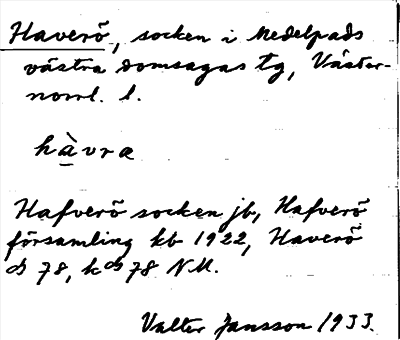 Haverö, socken i Medelpads
västra domsagas tg, Väster-
norrl. l.
hàvra
Hafverö socken jb, Hafverö
församling kb 1922, Haverö
ds 78, kds 78 NM.
Valter Jansson 1933.